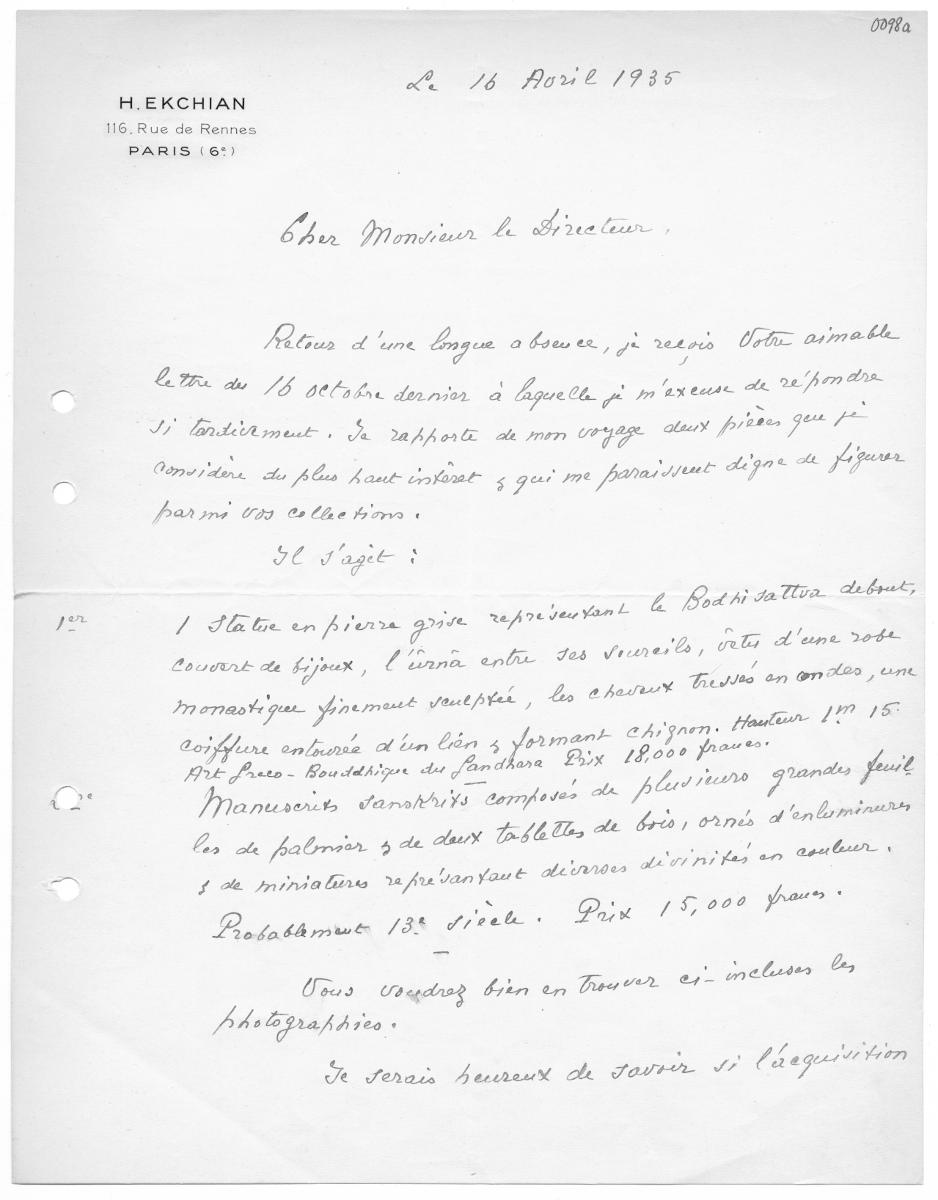 0098a
Le 16 Avril 1935
H. EKCHIAN
116, Rue de Rennes
PARIS (6e)
Cher Monsieur le Directeur,
Retour d'une longue absence, je reçois Votre aimable
lettre du 16 octobre dernier à laquelle je m'excuse de répondre
si tardivement. Je rapporte de mon voyage deux pièces que je
considère du plus haut intêret & qui me paraissent digne de figurer
parmi vos collections.
Il s'agit :
1er 1 Statue en pierre grise représentant le Bodhisattva debout,
couvert de bijoux, l'ûrnâ entre ses sourcils, vêtu d'une robe
monastique finement sculptée, les cheveux tressés en ondes, une
coiffure entourée d'un lien & formant chignon. Hauteur 1m 15.
Art Greco-Bouddhique du Gandhara Prix 18,000 francs.
Manuscrits sanskrits composés de plusieurs grandes feuil-
les de palmier & de deux tablettes de bois, ornés d'enluminures
& de miniatures représantant diverses divinités en couleur.
Probablement 13e siècle. Prix 15,000 francs.
Vous voudrez bien en trouver ci-incluses les
photographies.
Je serais heureux de savoir si l'acquisition